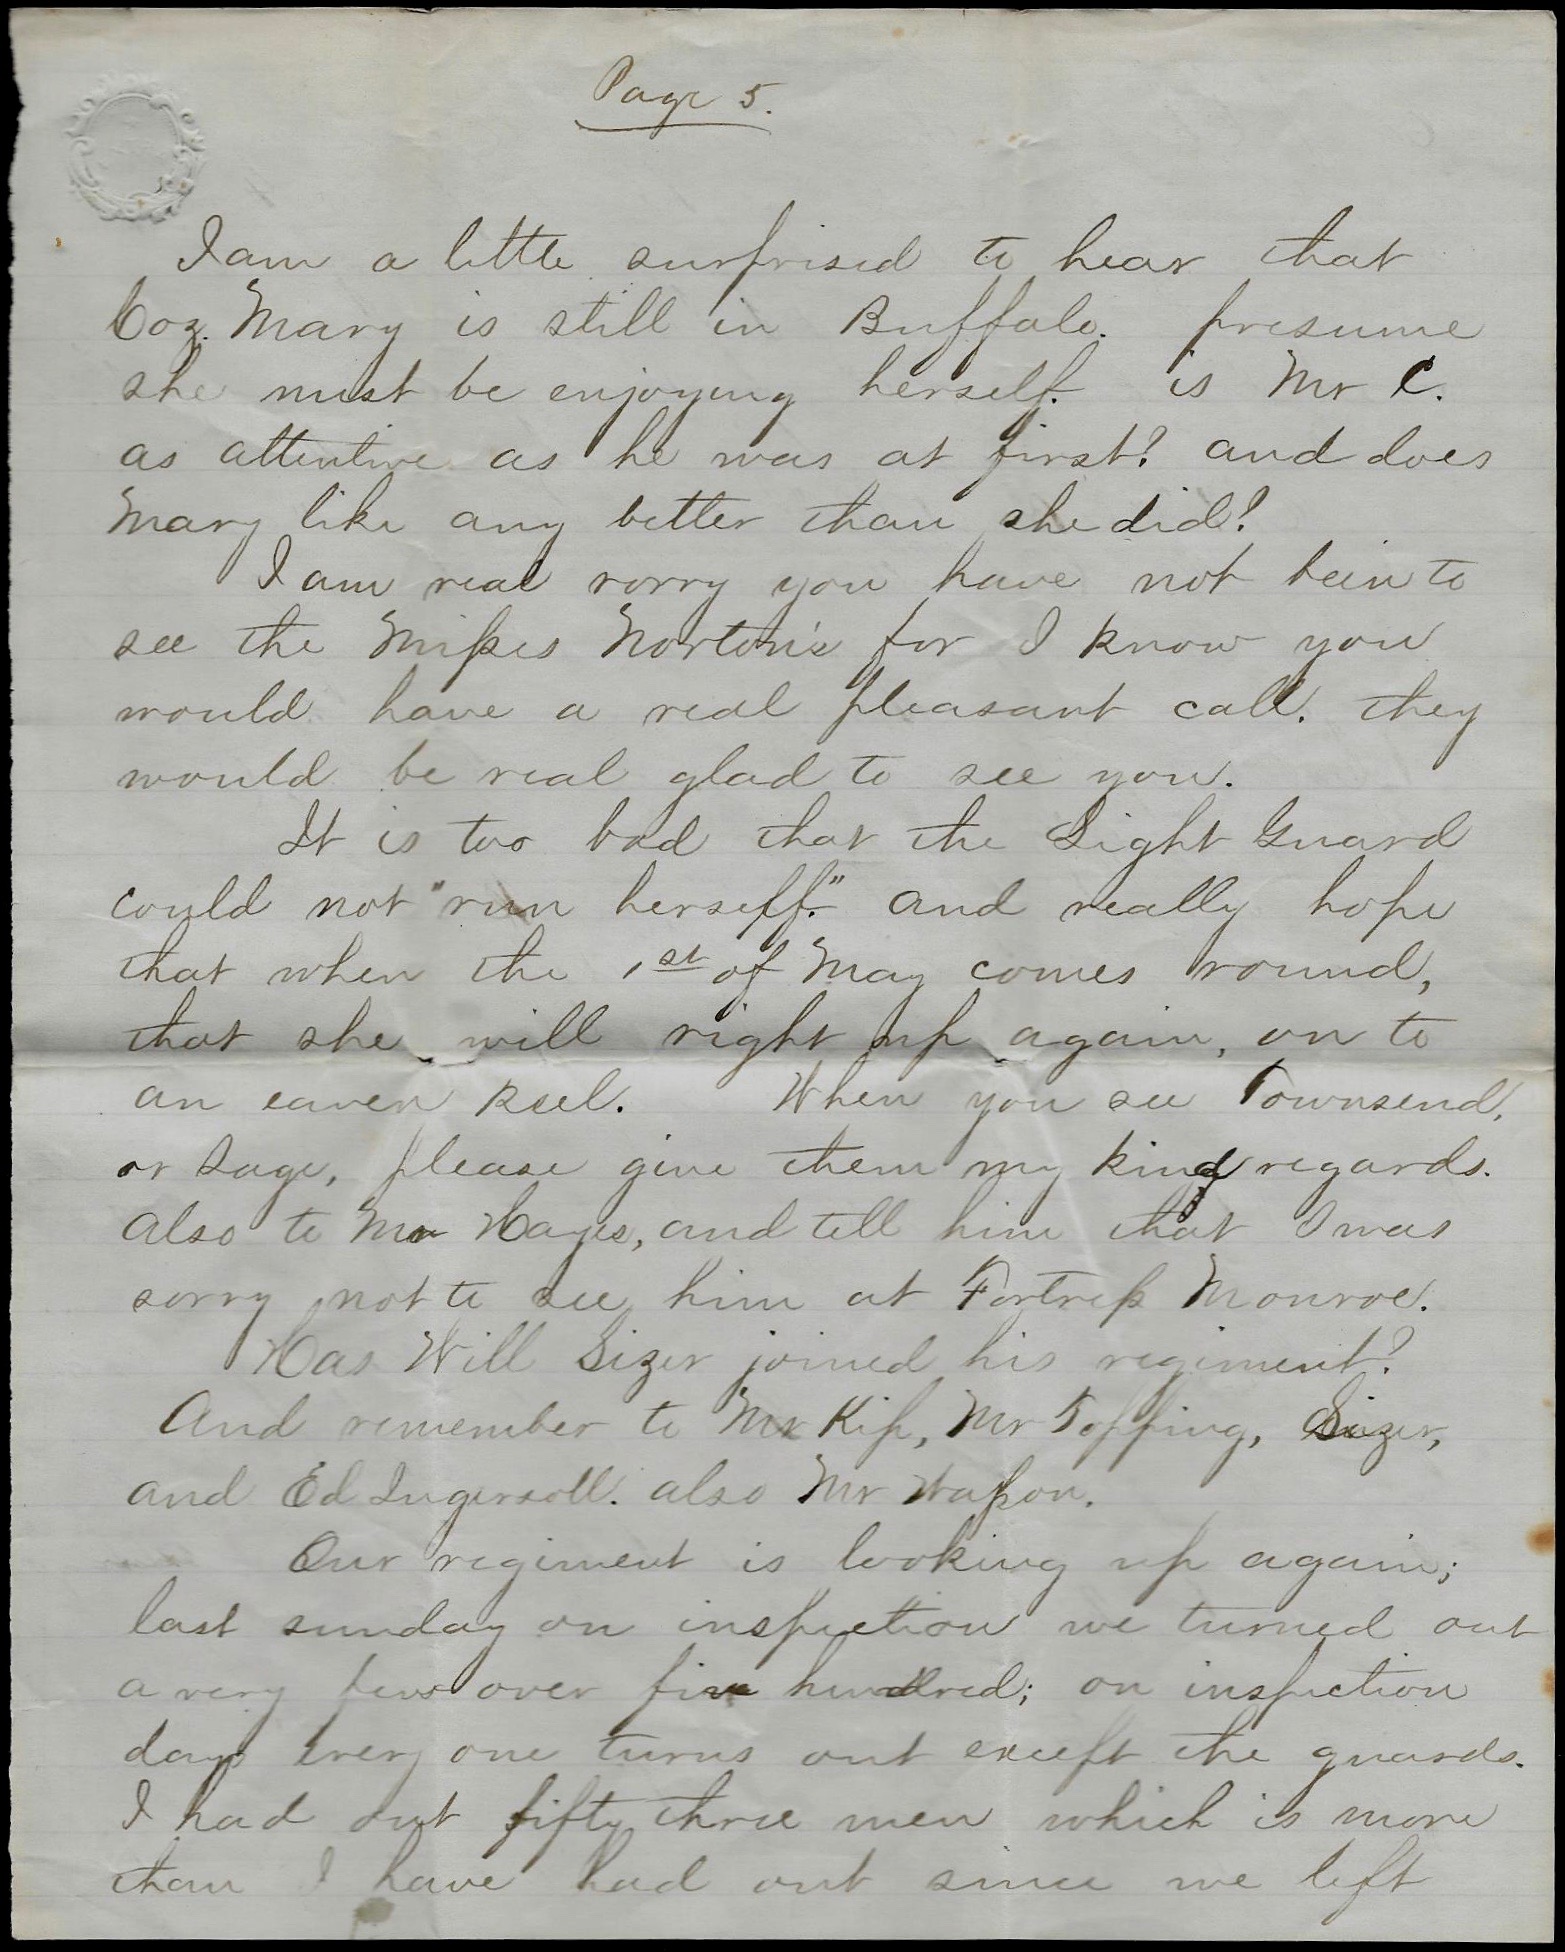 Page 5.
I am a little surprised to hear that
Coz. Mary is still in Buffalo. presume
she must be enjoying herself. is Mr C.
as attentive as he was at first? and does
Mary like any better than she did?
I am real sorry you have not bein to
see the Misses Norton's for I know you
would have a real pleasant call. they
would be real glad to see you.
It is too bad that the Light Guard
could not "run herself." and really hope
that when the 1st of May comes round,
that she will right up again, on to
an eaven keel. When you see Townsend,
or Sage, please give them my kind regards.
also to Mr Hayes, and tell him that I was
sorry not to see him at Fortress Monroe.
Has Will Sizer joined his regiment?
And remember to Mr Kip, Mr Topping, Sizer,
and Ed Ingersoll. also Mr Wasson.
Our regiment is looking up again;
last sunday on inspection we turned out
a very few over five hundred; on inspection
days every one turns out except the guards.
I had out fifty three men which is more
than I have had out since we left